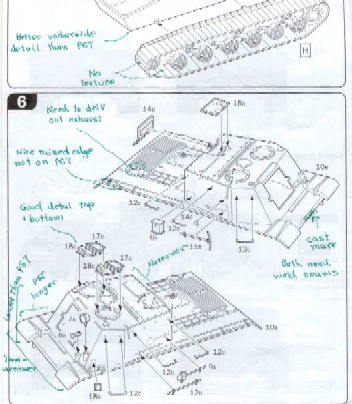 Better underside
detail than PST
No
texture
H
6
Need to drill
out exhaust
14c
18c
Nice raised edge
not on PST
10c
12c
Good detail top
+ bottom
14c
12c
17c
18c
11c
12c
cast
mark
Both need
weld seams
17c
18c
Narrower
Longer than PST
PST
longer
10c
12c
12c
12c
18c
12c
narrower